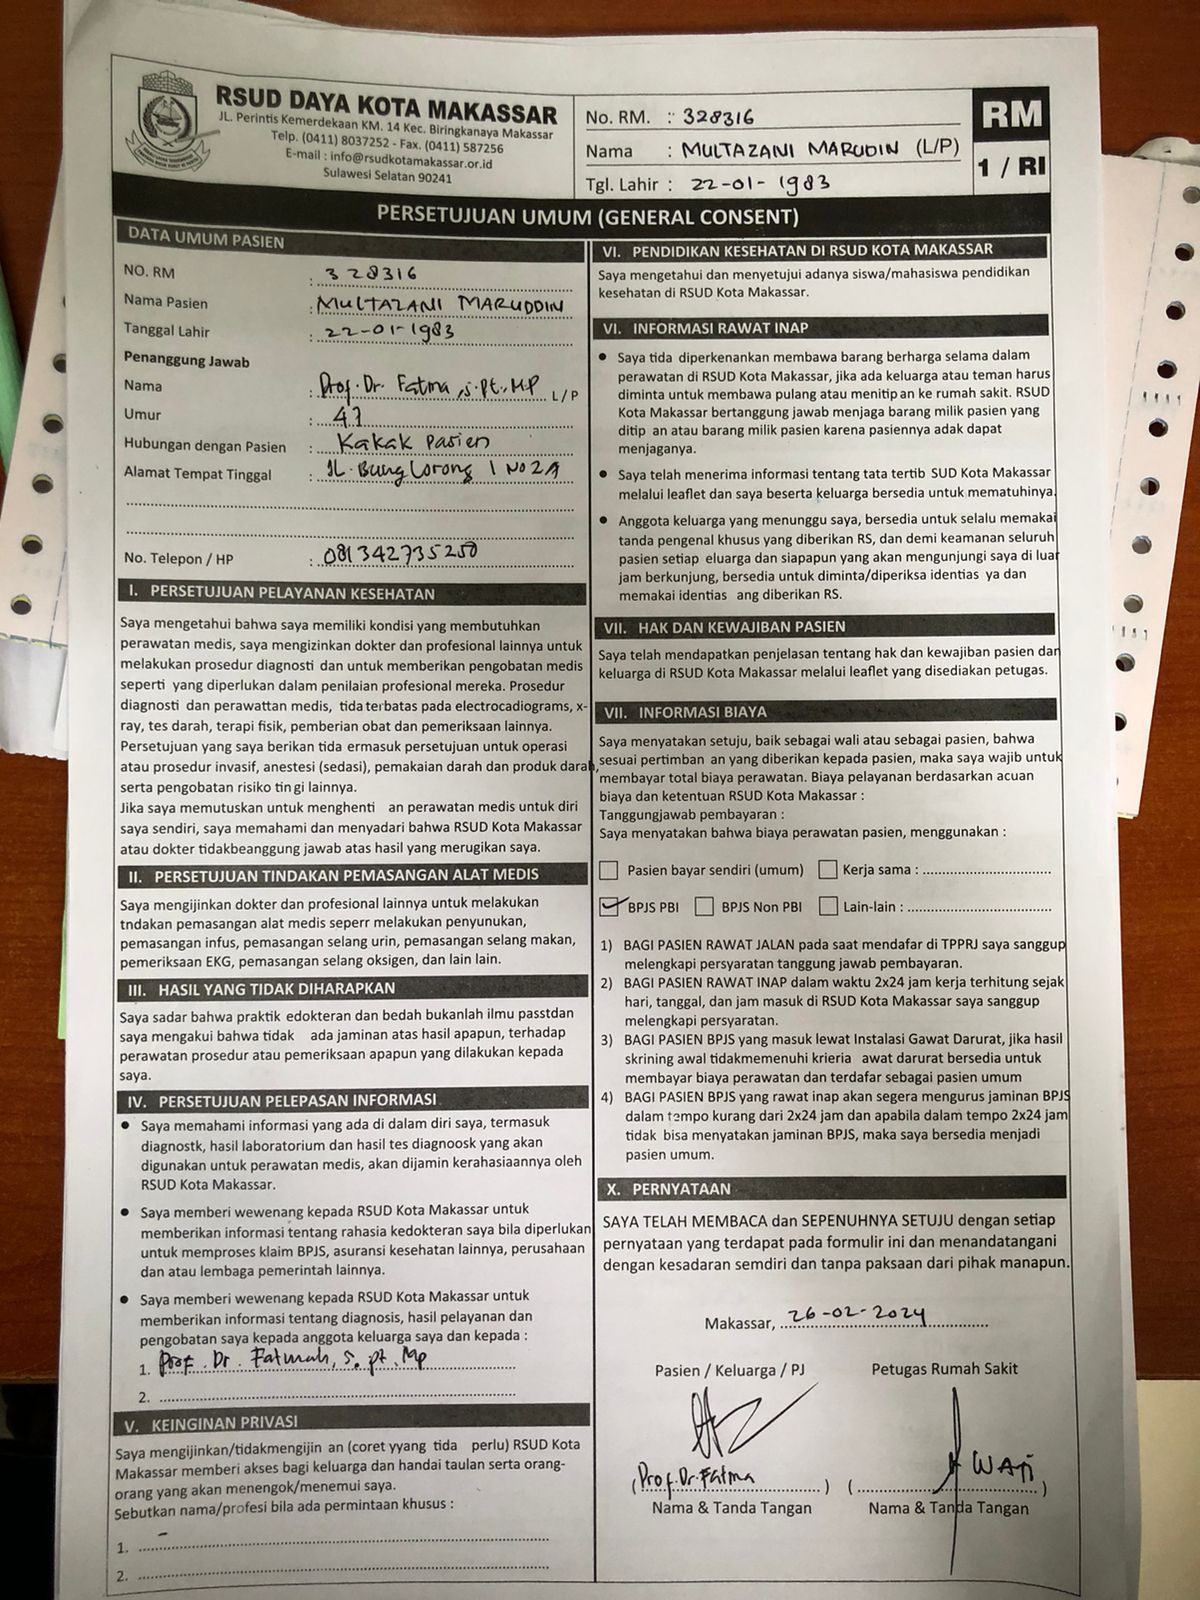 RSUD DAYA KOTA MAKASSAR
JL. Perintis Kemerdekaan KM. 14 Kec. Biringkanaya Makassar
Telp. (0411) 8037252 - Fax. (0411) 587256
E-mail : info@rsudkotamakassar.or.id
Sulawesi Selatan 90241
No. RM. : 328316
Nama : MULTAZANI MARUDIN (L/P)
Tgl. Lahir : 22-01-1983
RM
1 / RI
PERSETUJUAN UMUM (GENERAL CONSENT)
DATA UMUM PASIEN
NO. RM : 328316
Nama Pasien : MULTAZANI MARUDDIN
Tanggal Lahir : 22-01-1983
Penanggung Jawab
Nama : Prof. Dr. Fatma, S.Pt., M.P L/P
Umur : 47
Hubungan dengan Pasien : Kakak Pasien
Alamat Tempat Tinggal : JL. Bung Lorong 1 No 2A
No. Telepon / HP : 081342735250
I. PERSETUJUAN PELAYANAN KESEHATAN
Saya mengetahui bahwa saya memiliki kondisi yang membutuhkan
perawatan medis, saya mengizinkan dokter dan profesional lainnya untuk
melakukan prosedur diagnosti dan untuk memberikan pengobatan medis
seperti yang diperlukan dalam penilaian profesional mereka. Prosedur
diagnosti dan perawattan medis, tida terbatas pada electrocadiograms, x-
ray, tes darah, terapi fisik, pemberian obat dan pemeriksaan lainnya.
Persetujuan yang saya berikan tida ermasuk persetujuan untuk operasi
atau prosedur invasif, anestesi (sedasi), pemakaian darah dan produk darah,
serta pengobatan risiko tin gi lainnya.
Jika saya memutuskan untuk menghenti an perawatan medis untuk diri
saya sendiri, saya memahami dan menyadari bahwa RSUD Kota Makassar
atau dokter tidakbeanggung jawab atas hasil yang merugikan saya.
II. PERSETUJUAN TINDAKAN PEMASANGAN ALAT MEDIS
Saya mengijinkan dokter dan profesional lainnya untuk melakukan
tndakan pemasangan alat medis seperr melakukan penyunukan,
pemasangan infus, pemasangan selang urin, pemasangan selang makan,
pemeriksaan EKG, pemasangan selang oksigen, dan lain lain.
III. HASIL YANG TIDAK DIHARAPKAN
Saya sadar bahwa praktik edokteran dan bedah bukanlah ilmu passtdan
saya mengakui bahwa tidak ada jaminan atas hasil apapun, terhadap
perawatan prosedur atau pemeriksaan apapun yang dilakukan kepada
saya.
IV. PERSETUJUAN PELEPASAN INFORMASI
● Saya memahami informasi yang ada di dalam diri saya, termasuk
diagnostk, hasil laboratorium dan hasil tes diagnoosk yang akan
digunakan untuk perawatan medis, akan dijamin kerahasiaannya oleh
RSUD Kota Makassar.
● Saya memberi wewenang kepada RSUD Kota Makassar untuk
memberikan informasi tentang rahasia kedokteran saya bila diperlukan
untuk memproses klaim BPJS, asuransi kesehatan lainnya, perusahaan
dan atau lembaga pemerintah lainnya.
● Saya memberi wewenang kepada RSUD Kota Makassar untuk
memberikan informasi tentang diagnosis, hasil pelayanan dan
pengobatan saya kepada anggota keluarga saya dan kepada :
1. Prof. Dr. Fatmah, S. pt, Mp
2.
V. KEINGINAN PRIVASI
Saya mengijinkan/tidakmengijin an (coret yyang tida perlu) RSUD Kota
Makassar memberi akses bagi keluarga dan handai taulan serta orang-
orang yang akan menengok/menemui saya.
Sebutkan nama/profesi bila ada permintaan khusus :
1. -
2.
VI. PENDIDIKAN KESEHATAN DI RSUD KOTA MAKASSAR
Saya mengetahui dan menyetujui adanya siswa/mahasiswa pendidikan
kesehatan di RSUD Kota Makassar.
VI. INFORMASI RAWAT INAP
● Saya tida diperkenankan membawa barang berharga selama dalam
perawatan di RSUD Kota Makassar, jika ada keluarga atau teman harus
diminta untuk membawa pulang atau menitip an ke rumah sakit. RSUD
Kota Makassar bertanggung jawab menjaga barang milik pasien yang
ditip an atau barang milik pasien karena pasiennya adak dapat
menjaganya.
● Saya telah menerima informasi tentang tata tertib SUD Kota Makassar
melalui leaflet dan saya beserta keluarga bersedia untuk mematuhinya.
● Anggota keluarga yang menunggu saya, bersedia untuk selalu memakai
tanda pengenal khusus yang diberikan RS, dan demi keamanan seluruh
pasien setiap eluarga dan siapapun yang akan mengunjungi saya di luar
jam berkunjung, bersedia untuk diminta/diperiksa identias ya dan
memakai identias ang diberikan RS.
VII. HAK DAN KEWAJIBAN PASIEN
Saya telah mendapatkan penjelasan tentang hak dan kewajiban pasien dan
keluarga di RSUD Kota Makassar melalui leaflet yang disediakan petugas.
VII. INFORMASI BIAYA
Saya menyatakan setuju, baik sebagai wali atau sebagai pasien, bahwa
sesuai pertimban an yang diberikan kepada pasien, maka saya wajib untuk
membayar total biaya perawatan. Biaya pelayanan berdasarkan acuan
biaya dan ketentuan RSUD Kota Makassar :
Tanggungjawab pembayaran :
Saya menyatakan bahwa biaya perawatan pasien, menggunakan :
Pasien bayar sendiri (umum) Kerja sama :
BPJS PBI BPJS Non PBI Lain-lain :
1) BAGI PASIEN RAWAT JALAN pada saat mendafar di TPPRJ saya sanggup
melengkapi persyaratan tanggung jawab pembayaran.
2) BAGI PASIEN RAWAT INAP dalam waktu 2x24 jam kerja terhitung sejak
hari, tanggal, dan jam masuk di RSUD Kota Makassar saya sanggup
melengkapi persyaratan.
3) BAGI PASIEN BPJS yang masuk lewat Instalasi Gawat Darurat, jika hasil
skrining awal tidakmemenuhi krieria awat darurat bersedia untuk
membayar biaya perawatan dan terdafar sebagai pasien umum
4) BAGI PASIEN BPJS yang rawat inap akan segera mengurus jaminan BPJS
dalam tempo kurang dari 2x24 jam dan apabila dalam tempo 2x24 jam
tidak bisa menyatakan jaminan BPJS, maka saya bersedia menjadi
pasien umum.
X. PERNYATAAN
SAYA TELAH MEMBACA dan SEPENUHNYA SETUJU dengan setiap
pernyataan yang terdapat pada formulir ini dan menandatangani
dengan kesadaran semdiri dan tanpa paksaan dari pihak manapun.
Makassar, 26-02-2024
Pasien / Keluarga / PJ Petugas Rumah Sakit
(Prof. Dr. Fatma) (WATI)
Nama & Tanda Tangan Nama & Tanda Tangan